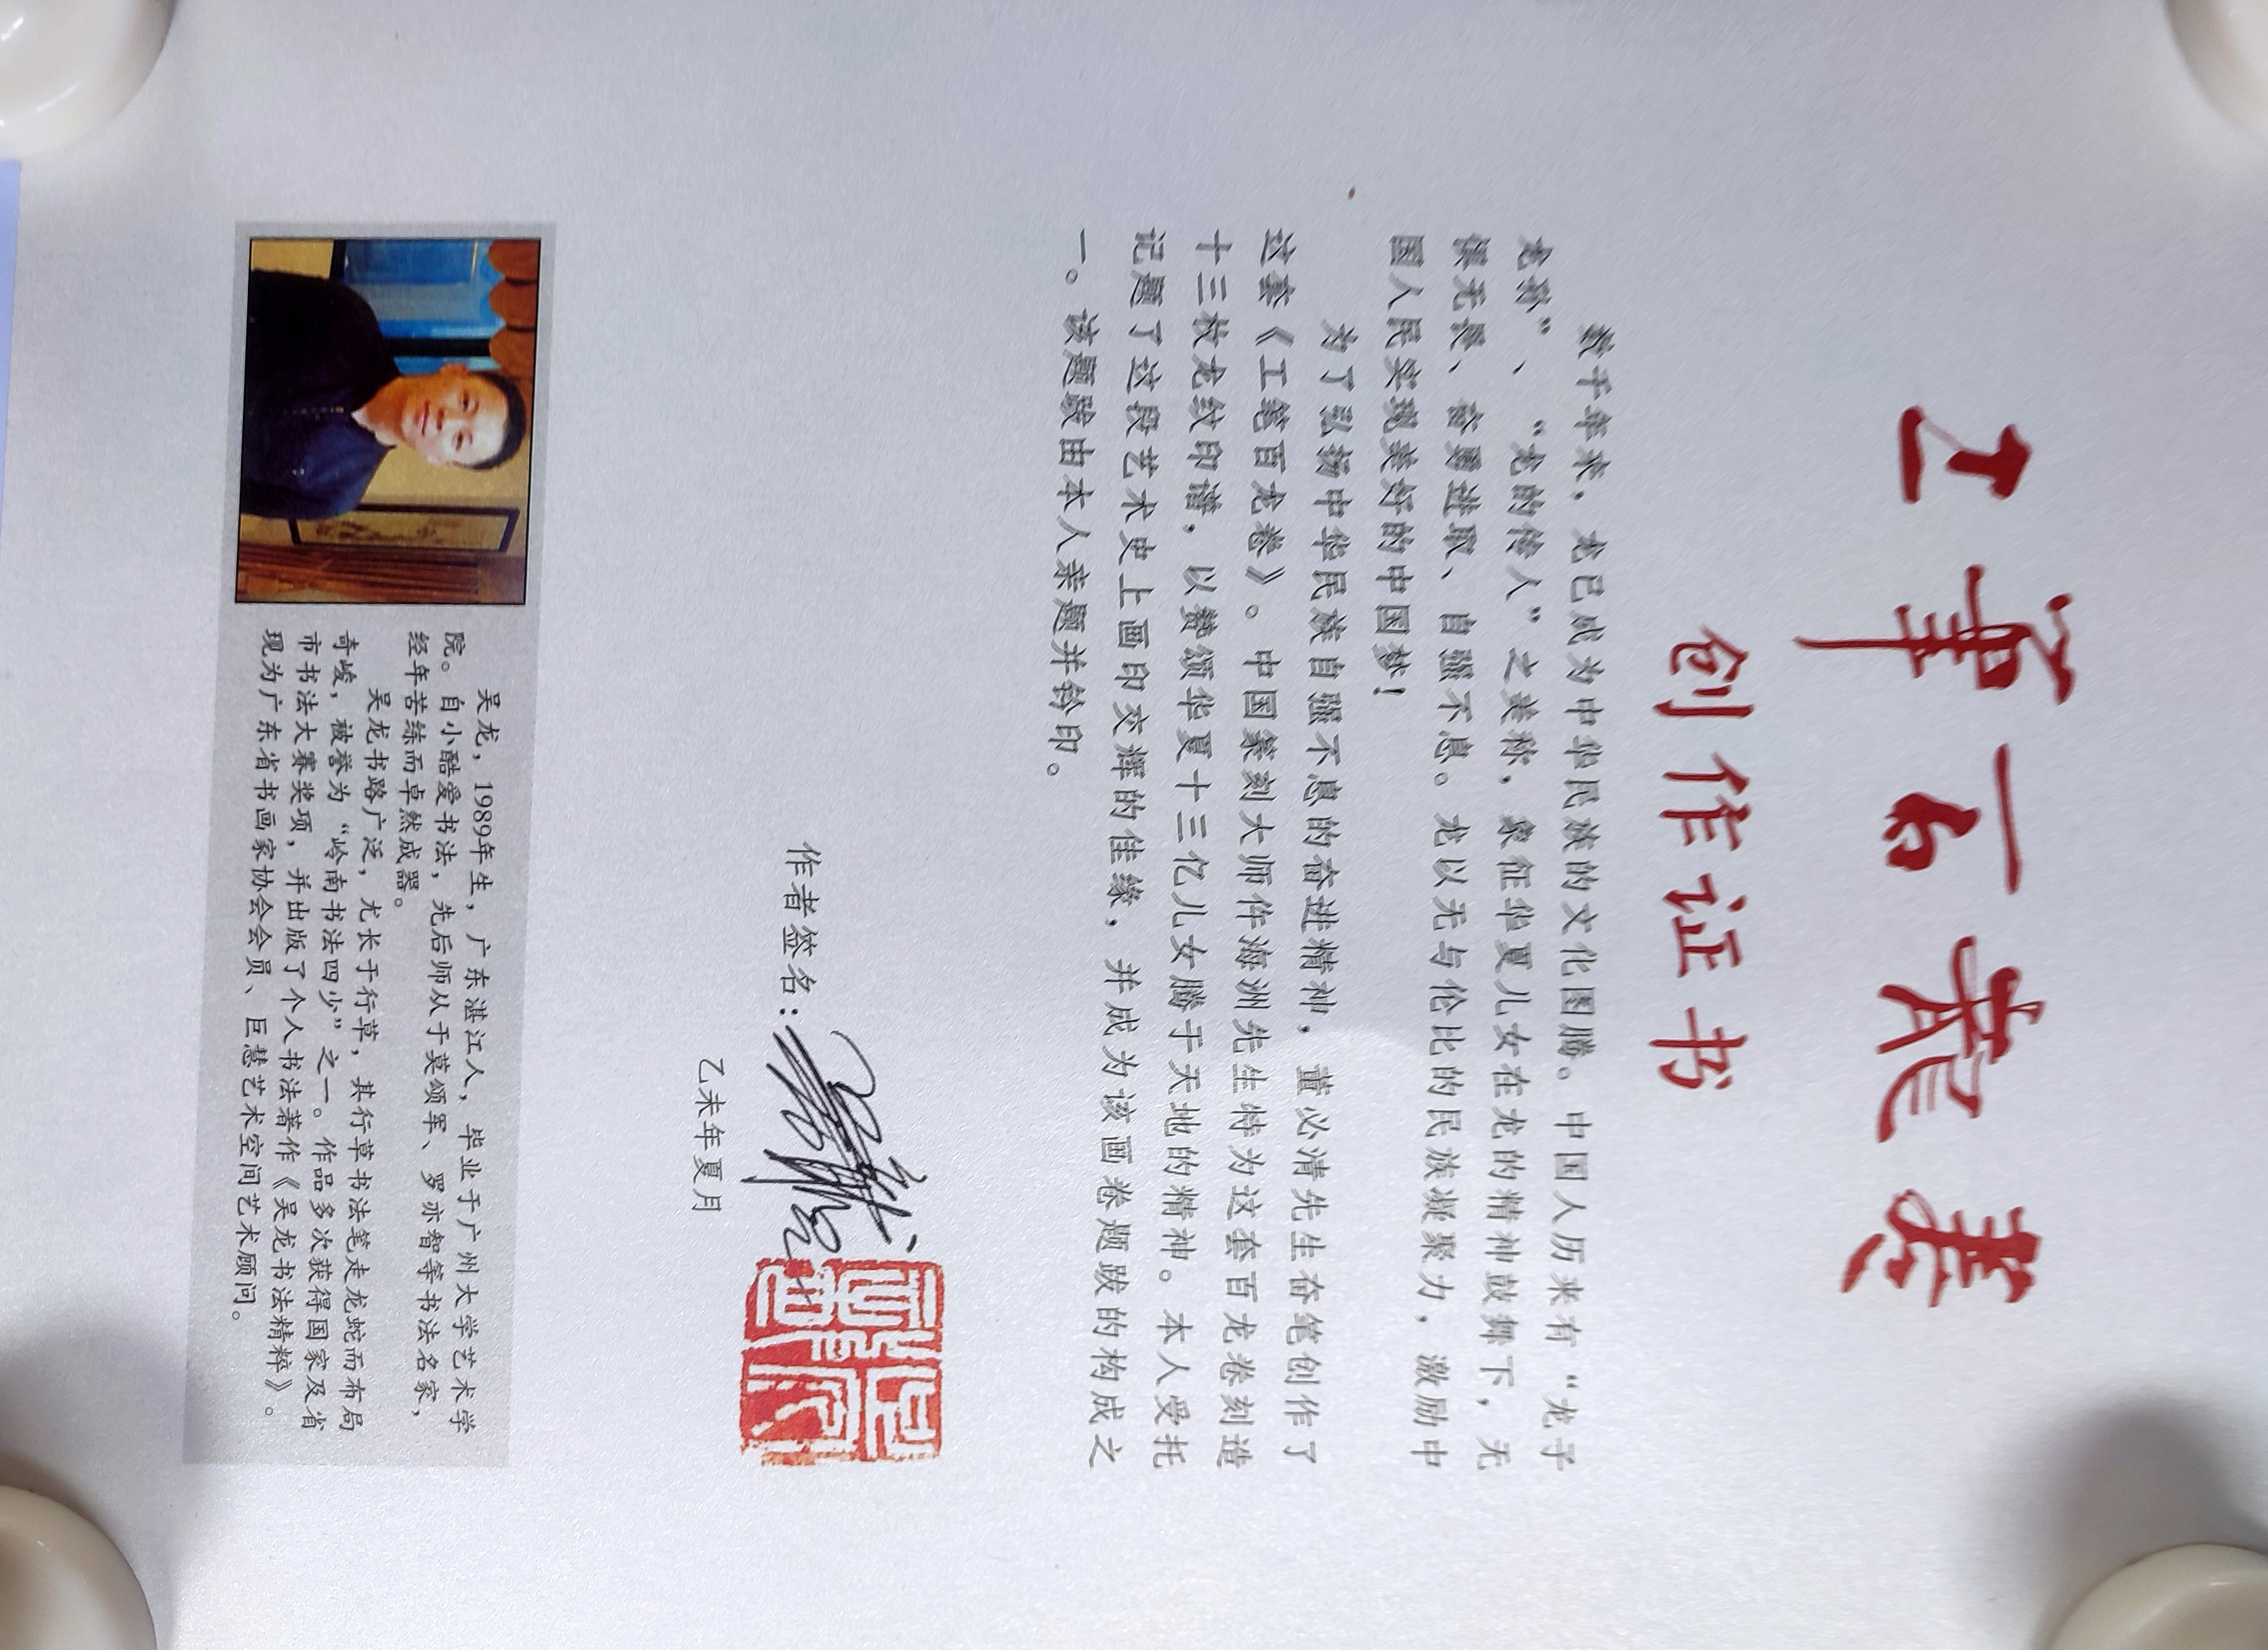 工笔百龙卷
创作证书
数千年来，龙已成为中华民族的文化图腾。中国人历来有“龙子
龙孙”、“龙的传人”之美称，象征华夏儿女在龙的精神鼓舞下，无
惧无畏、奋勇进取、自强不息。龙以无与伦比的民族凝聚力，激励中
国人民实现美好的中国梦！
为了弘扬中华民族自强不息的奋进精神，董必清先生奋笔创作了
这套《工笔百龙卷》。中国篆刻大师佟海洲先生特为这套百龙卷刻造
十三枚龙纹印谱，以赞颂华夏十三亿儿女腾于天地的精神。本人受托
记题了这段艺术史上画印交辉的佳缘，并成为该画卷题跋的构成之
一。该题跋由本人亲题并钤印。
作者签名：
乙未年夏月
吴龙，1989年生，广东湛江人，毕业于广州大学艺术学
院。自小酷爱书法，先后师从于莫颂军、罗亦智等书法名家，
经年苦练而卓然成器。
吴龙书路广泛，尤长于行草，其行草书法笔走龙蛇而布局
奇峻，被誉为“岭南书法四少”之一。作品多次获得国家及省
市书法大赛奖项，并出版了个人书法著作《吴龙书法精粹》。
现为广东省书画家协会会员、巨慧艺术空间艺术顾问。